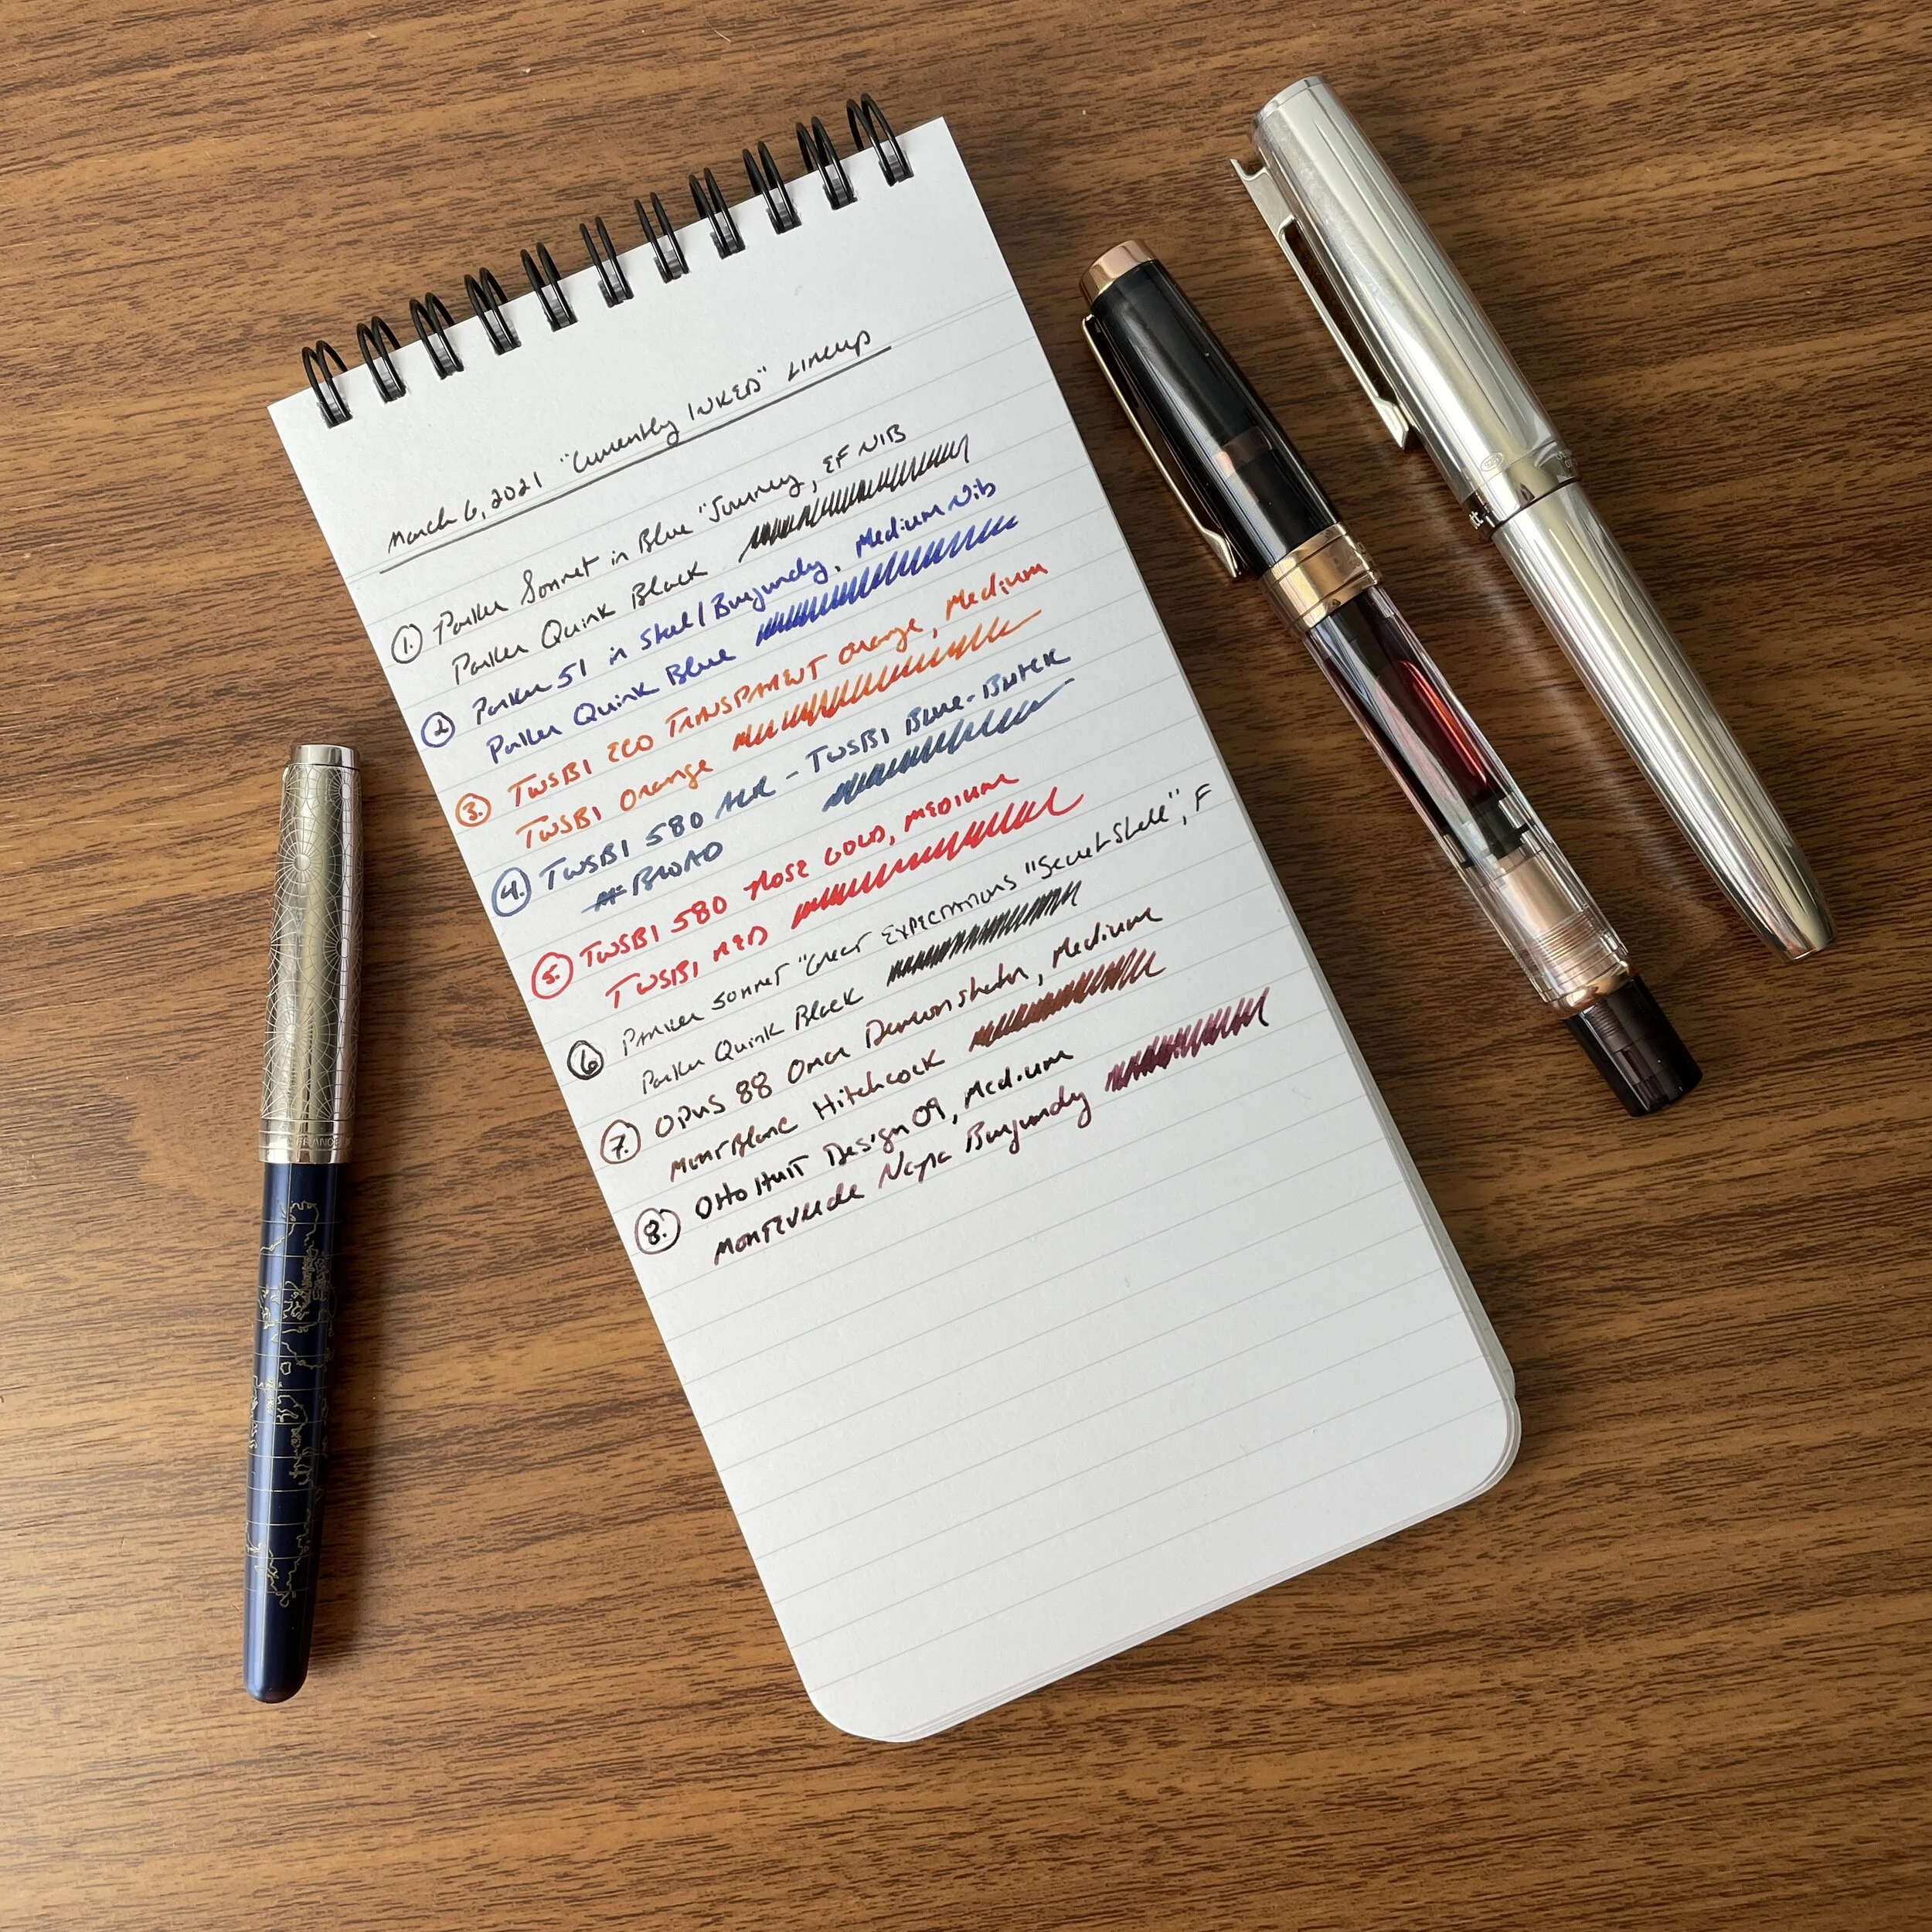 March 6, 2021 "Currently INKED" Lineup
1. Parker Sonnet in Blue "Journey, EF NIB
Parker Quink Black
2. Parker 51 in Steel/Burgundy, Medium Nib
Parker Quink Blue
3. TWSBI ECO TRANSPARENT Orange, Medium
TWSBI Orange
4. TWSBI 580 ALR - TWSBI Blue-Black
BROAD
5. TWSBI 580 ROSE GOLD, MEDIUM
TWSBI RED
6 PARKER SONNET "GREAT EXPECTATIONS "Secret Shell", F
Parker Quink Black
7. OPUS 88 OMAR Demonstrator, Medium
MONTBLANC Hitchcock
8. Otto Hutt Design 09, Medium
MONTEVERDE Napa Burgundy
FRANCE